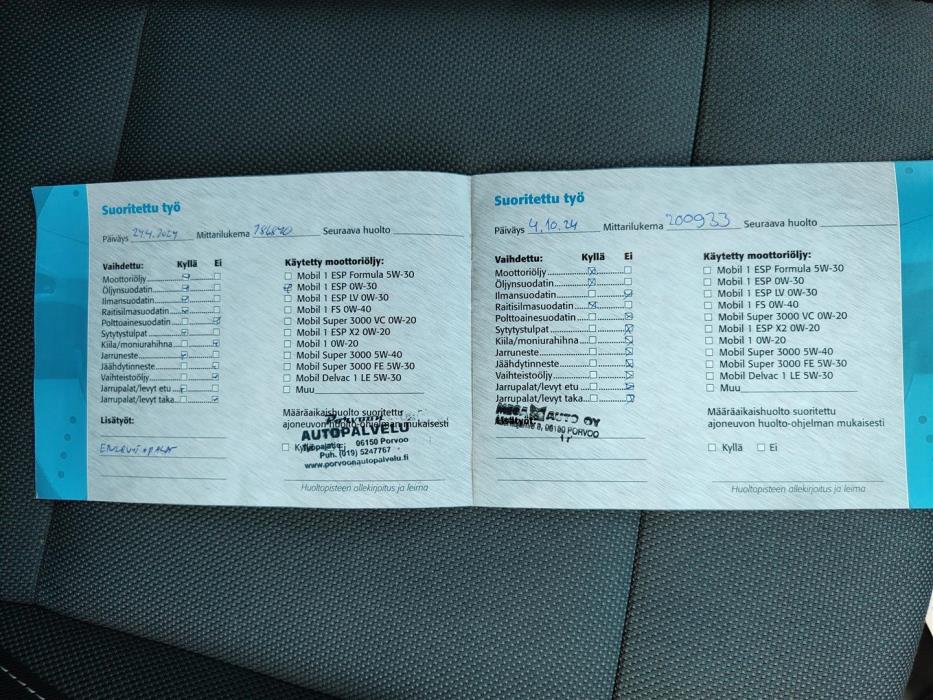 Suoritettu työ
Päiväys 24.4.2024 Mittarilukema Seuraava huolto
Vaihdettu: Kyllä Ei
Moottoriöljy
Öljynsuodatin
Ilmansuodatin
Raitisilmasuodatin
Polttoainesuodatin
Sytytystulpat
Kiila/moniurahihna
Jarruneste
Jäähdytinneste
Vaihteistoöljy
Jarrupalat/levyt etu
Jarrupalat/levyt taka
Lisätyöt:
Käytetty moottoriöljy:
Mobil 1 ESP Formula 5W-30
Mobil 1 ESP 0W-30
Mobil 1 ESP LV 0W-30
Mobil 1 FS 0W-40
Mobil Super 3000 VC 0W-20
Mobil 1 ESP X2 0W-20
Mobil 1 0W-20
Mobil Super 3000 5W-40
Mobil Super 3000 FE 5W-30
Mobil Delvac 1 LE 5W-30
Muu
Määräaikaishuolto suoritettu
ajoneuvon huolto-ohjelman mukaisesti
Kyllä Ei
Porvoon
AUTOPALVELU
06150 Porvoo
Puh. (019) 5247767
www.porvoonautopalvelu.fi
Huoltopisteen allekirjoitus ja leima
Suoritettu työ
Päiväys 4.10.24 Mittarilukema 200933 Seuraava huolto
Vaihdettu: Kyllä Ei
Moottoriöljy
Öljynsuodatin
Ilmansuodatin
Raitisilmasuodatin
Polttoainesuodatin
Sytytystulpat
Kiila/moniurahihna
Jarruneste
Jäähdytinneste
Vaihteistoöljy
Jarrupalat/levyt etu
Jarrupalat/levyt taka
Lisätyöt:
AUTO OY
8, 06150 PORVOO
Käytetty moottoriöljy:
Mobil 1 ESP Formula 5W-30
Mobil 1 ESP 0W-30
Mobil 1 ESP LV 0W-30
Mobil 1 FS 0W-40
Mobil Super 3000 VC 0W-20
Mobil 1 ESP X2 0W-20
Mobil 1 0W-20
Mobil Super 3000 5W-40
Mobil Super 3000 FE 5W-30
Mobil Delvac 1 LE 5W-30
Muu
Määräaikaishuolto suoritettu
ajoneuvon huolto-ohjelman mukaisesti
Kyllä Ei
Huoltopisteen allekirjoitus ja leima